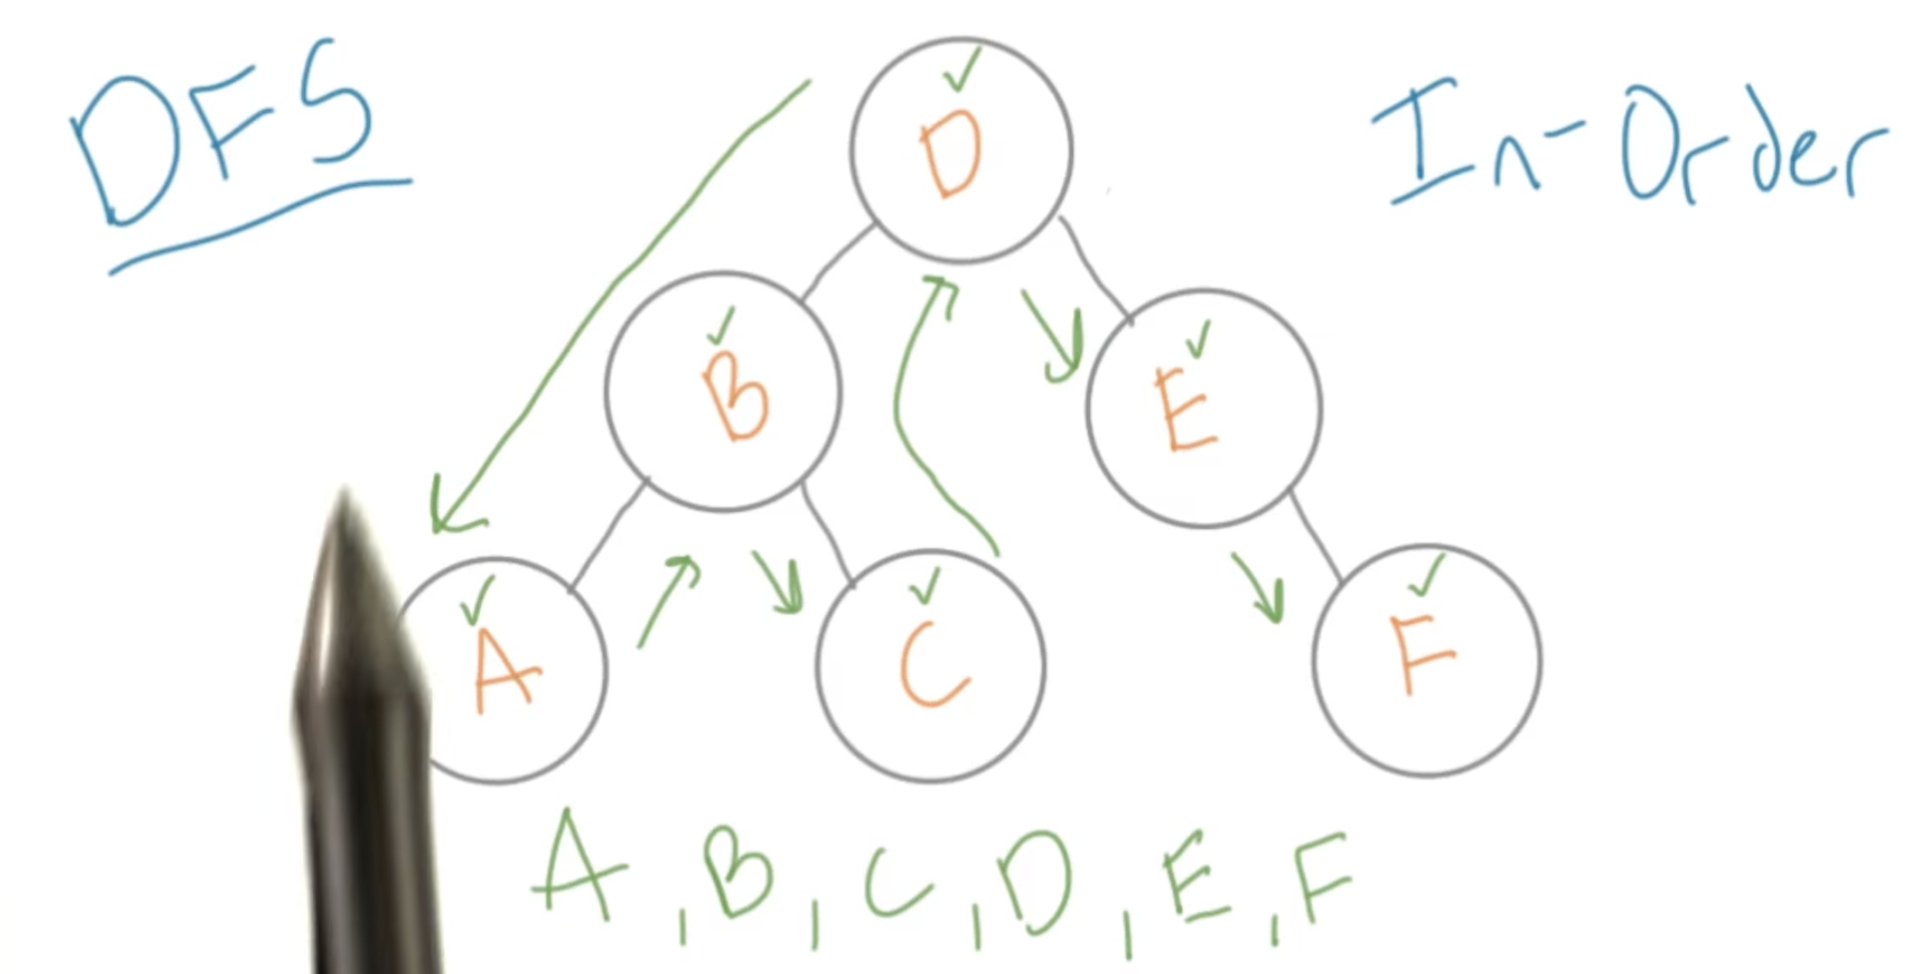 DFS
In-Order
D
B
E
A
C
F
A, B, C, D, E, F